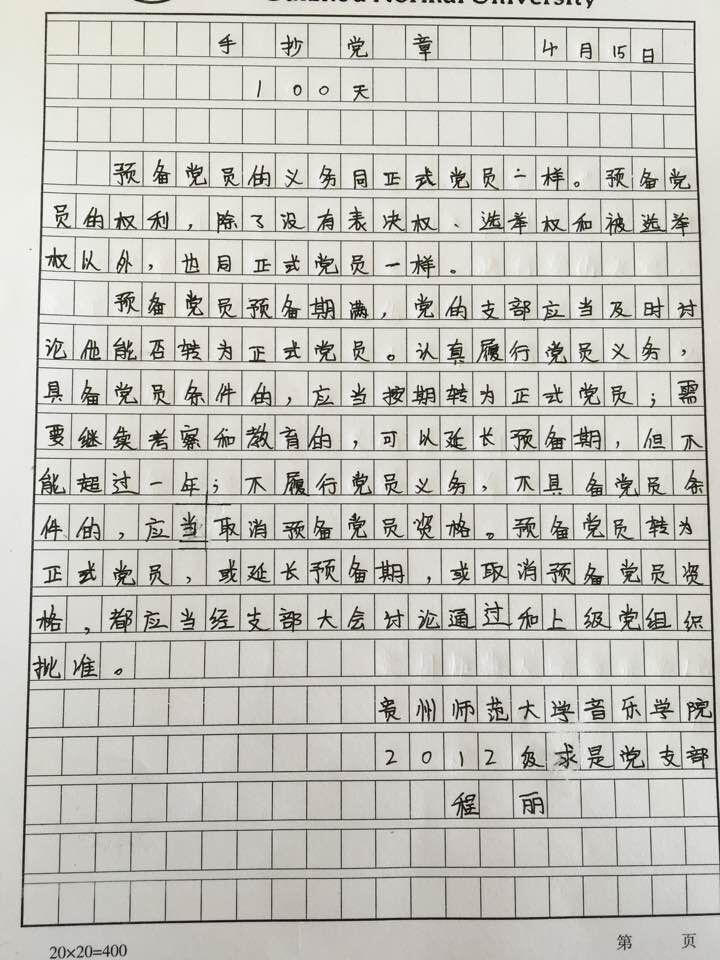 Guizhou Normal University
手抄党章 4月15日
100天
预备党员的义务同正式党员一样。预备党
员的权利，除了没有表决权、选举权和被选举
权以外，也同正式党员一样。
预备党员预备期满，党的支部应当及时讨
论他能否转为正式党员。认真履行党员义务，
具备党员条件的，应当按期转为正式党员；需
要继续考察和教育的，可以延长预备期，但不
能超过一年；不履行党员义务，不具备党员条
件的，应当取消预备党员资格。预备党员转为
正式党员，或延长预备期，或取消预备党员资
格，都应当经支部大会讨论通过和上级党组织
批准。
贵州师范大学音乐学院
2012级求是党支部
程丽
20×20=400 第 页